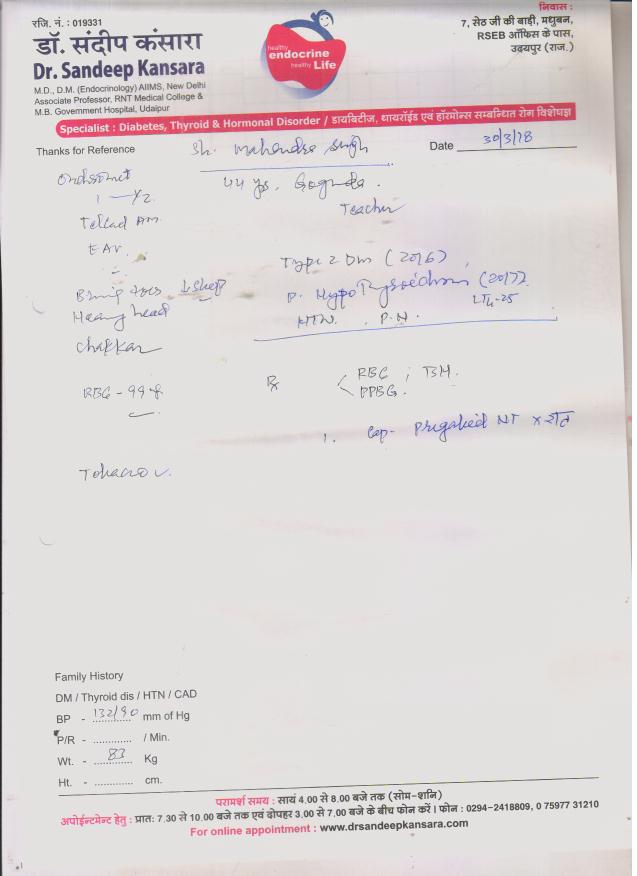 रजि. नं. : 019331
डॉ. संदीप कंसारा
Dr. Sandeep Kansara
M.D., D.M. (Endocrinology) AIIMS, New Delhi
Associate Professor, RNT Medical College &
M.B. Government Hospital, Udaipur
healthy
endocrine
healthy Life
निवास :
7, सेठ जी की बाड़ी, मधुबन,
RSEB ऑफिस के पास,
उदयपुर (राज.)
Specialist : Diabetes, Thyroid & Hormonal Disorder / डायबिटीज, थायरॉईड एवं हॉरमोन्स सम्बन्धित रोग विशेषज्ञ
Thanks for Reference
Sh. Mahendra Singh
Date 30/3/18
44 ys.
Teacher
1 — 1/2
Tellad AM.
Type 2 DM (2016)
P. Hypothyroidism (2017)
LT4-25
HTN. P.N.
↓sleep
Heavy head
Chakkar
RBG - 99
Rx
RBG ; BM.
PPBG.
1. Cap- NT x
Tobacco
Family History
DM / Thyroid dis / HTN / CAD
BP - 132/90 mm of Hg
P/R - ............. / Min.
Wt. - 83 Kg
Ht. - ............. cm.
परामर्श समय : सायं 4.00 से 8.00 बजे तक (सोम-शनि)
अपोईन्टमेन्ट हेतु : प्रातः 7.30 से 10.00 बजे तक एवं दोपहर 3.00 से 7.00 बजे के बीच फोन करें । फोन : 0294-2418809, 0 75977 31210
For online appointment : www.drsandeepkansara.com